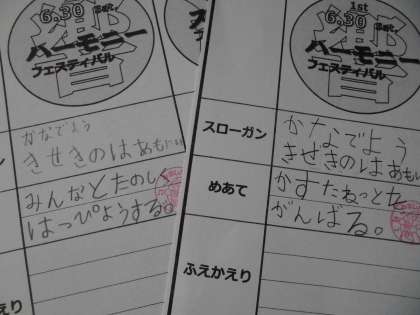 6.30 Sat.
ハーモニー
フェスティバル
かなでよう
きせきのはあもにい
みんなとたのしく
はっぴょうする。
えり
1st
6.30 Sat.
ハーモニー
フェスティバル
スローガン
かなでよう
きせきのはあもに
めあて
かすたねっとを
がんばる。
ふえかえり